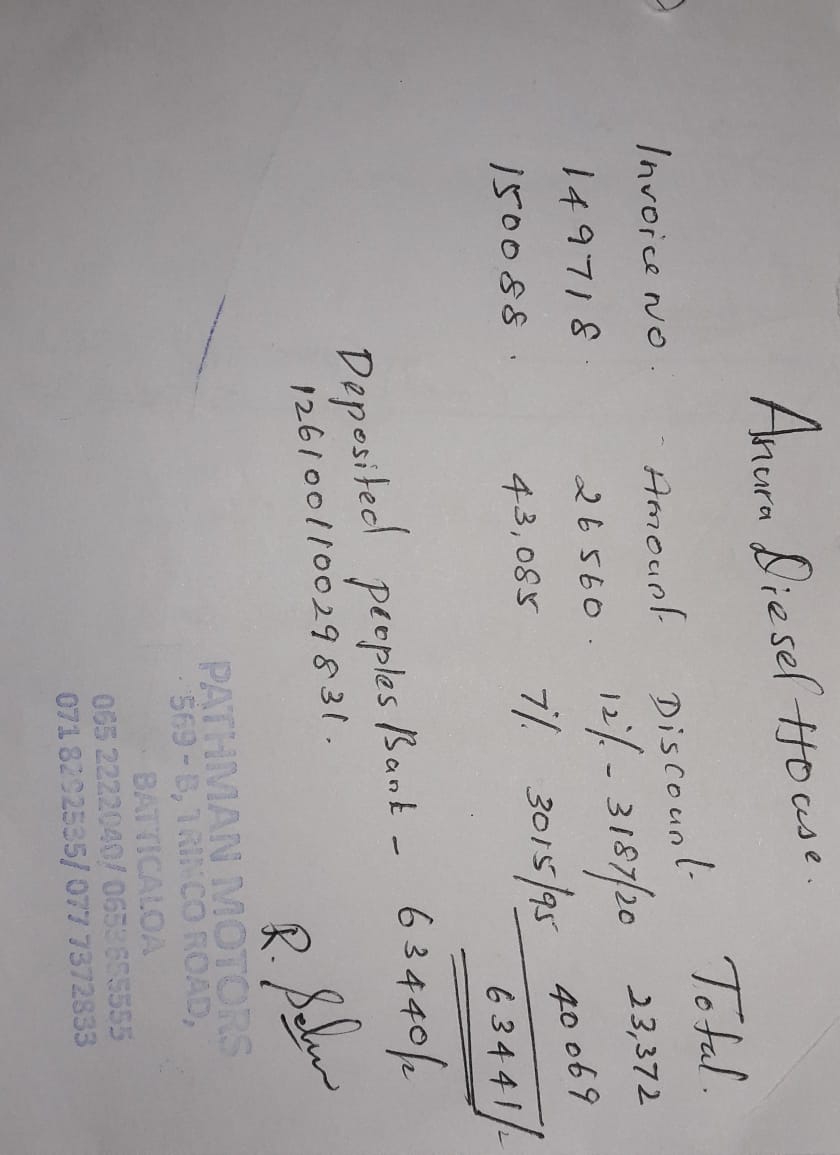 Anura Diesel House.
Invoice No. - Amount Discount Total.
149718. 26560. 12% - 3187/20 23,372
150088. 43,085 7% 3015/95 40069
63441/-
Deposited peoples Bank - 63440/-
126100110029831.
R.
PATHMAN MOTORS
569 - B, TRINCO ROAD,
BATTICALOA
065 2222040/
071 8292535/ 077 7372833